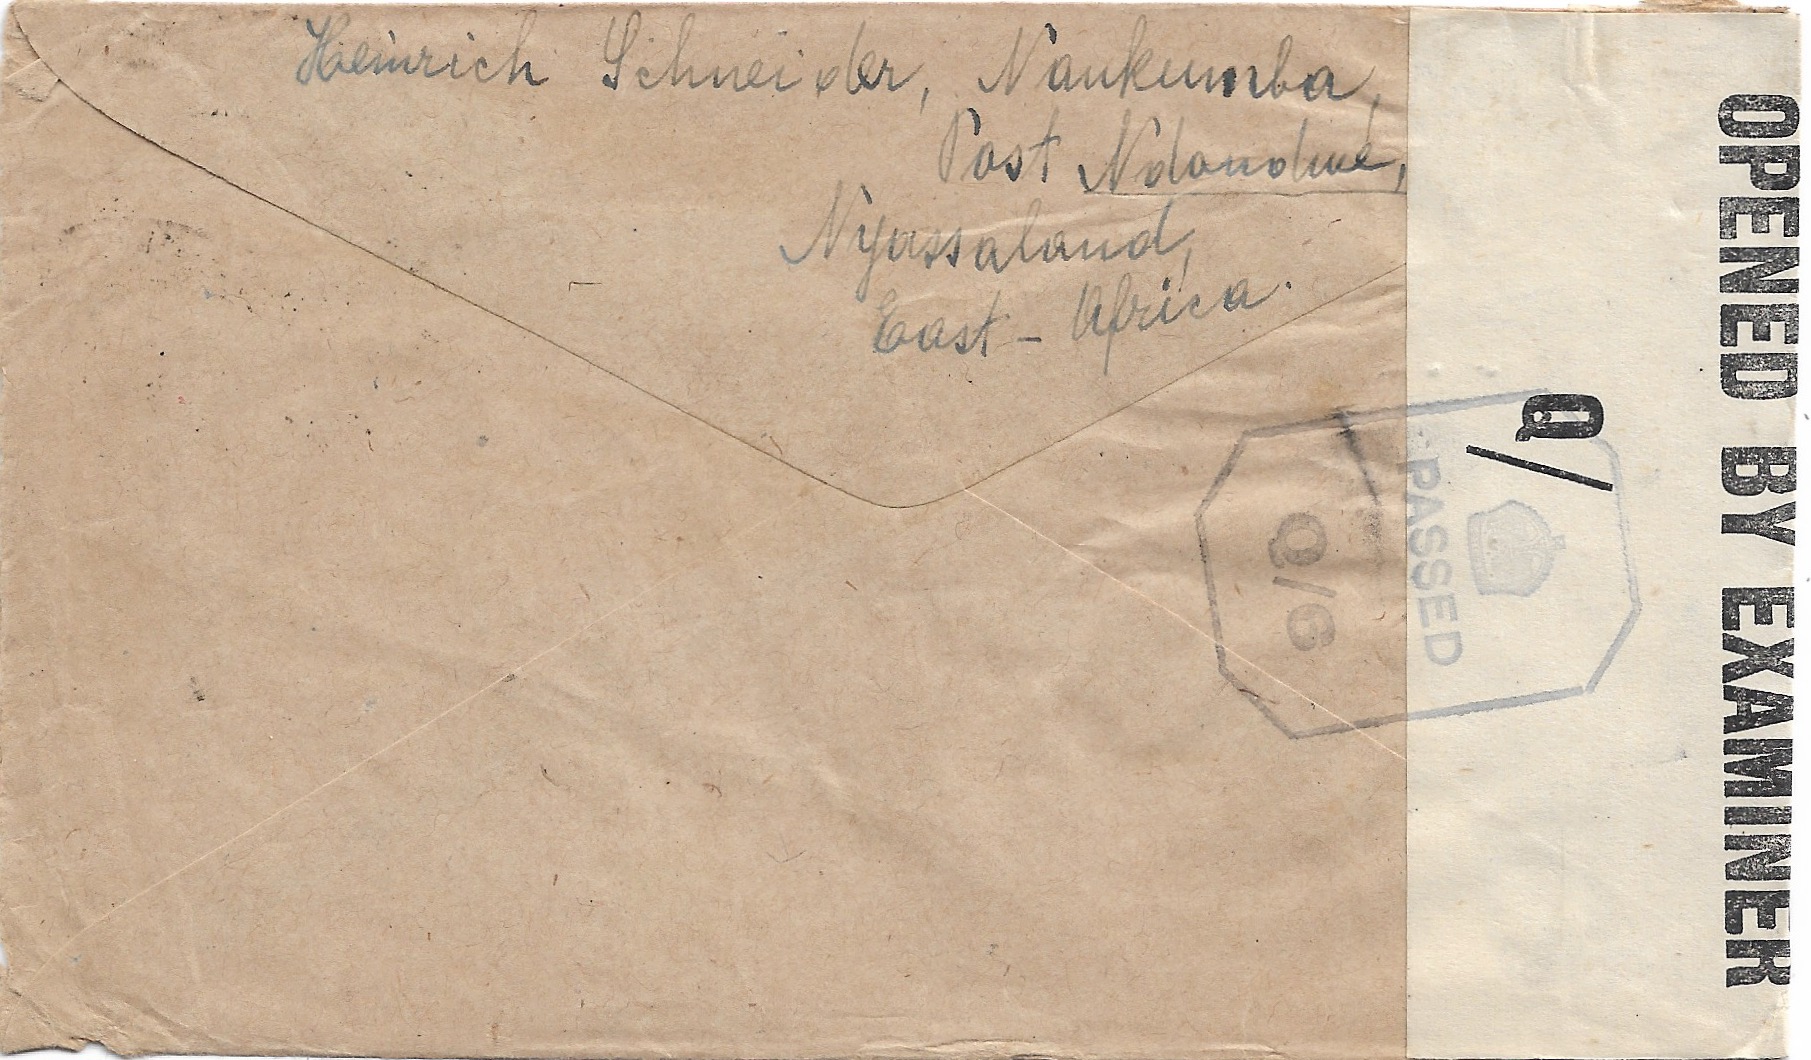 Heinrich Schneider, Naukumba,
Post Ndoudwé,
Nyassaland,
East - Africa.
OPENED BY EXAMINER
Q/
PASSED
Q/G